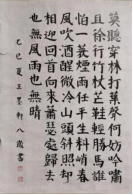 莫聽穿林打葉聲何妨吟嘯
且徐行竹杖芒鞋輕勝馬誰
怕一蓑煙雨任平生料峭春
風吹酒醒微冷山頭斜照却
相迎回首向來蕭瑟處歸去
也無風雨也無晴
乙巳夏王墨軒八歲書